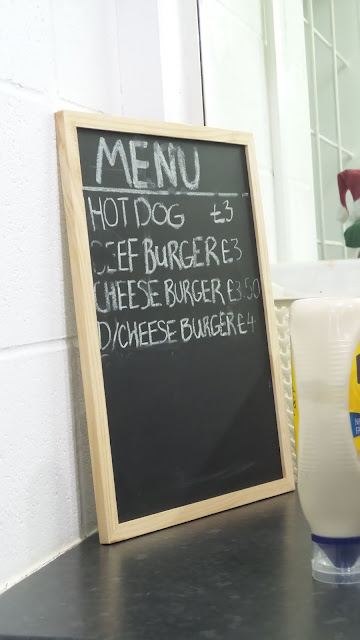 MENU
HOT DOG £3
BEEF BURGER £3
CHEESE BURGER £3.50
D/CHEESE BURGER £4